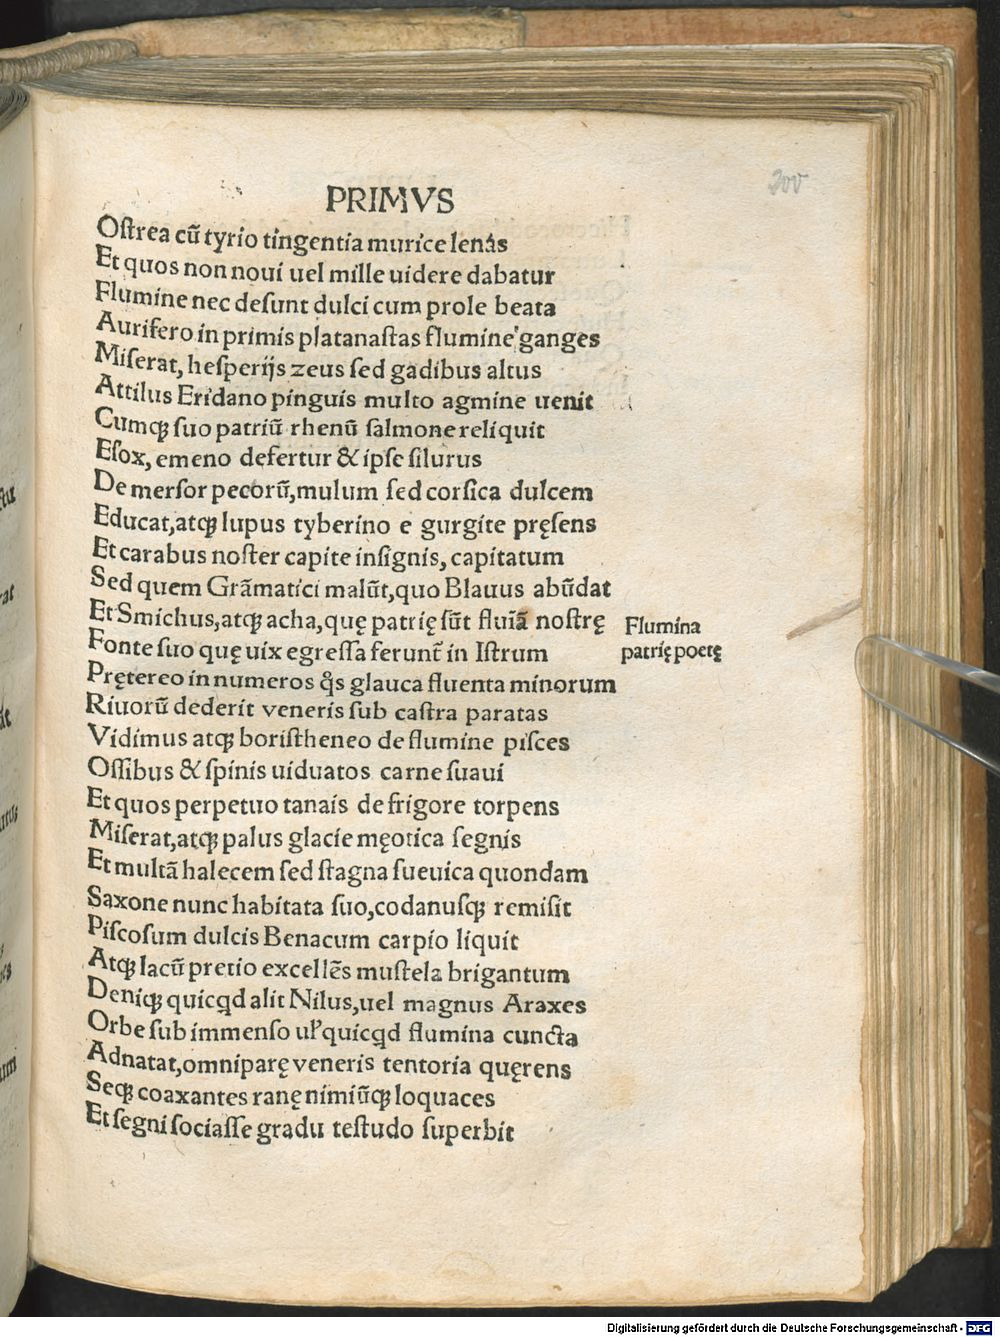 200
PRIMVS
Oſtrea cũ tyrio tingentia murice lenas
Et quos non noui uel mille uidere dabatur
Flumine nec deſunt dulci cum prole beata
Aurifero in primis platanaſtas flumine ganges
Miſerat, heſperijs zeus ſed gadibus altus
Attilus Eridano pinguis multo agmine uenit
Cumqꝫ ſuo patriũ rhenũ ſalmone reliquit
Eſox, emeno defertur & ipſe ſilurus
De merſor pecorũ, mulum ſed corſica dulcem
Educat, atqꝫ lupus tyberino e gurgite pręſens
Et carabus noſter capite inſignis, capitatum
Sed quem Grãmatici malũt, quo Blauus abũdat
Et Smichus, atqꝫ acha, quę patrię ſũt fluĩa noſtrę
Flumina
patrię poetę
Fonte ſuo quę uix egreſſa ferunt̃ in Iſtrum
Prętereo in numeros q̊s glauca fluenta minorum
Riuorũ dederit veneris ſub caſtra paratas
Vidimus atqꝫ boriſtheneo de flumine piſces
Oſſibus & ſpinis uiduatos carne ſuaui
Et quos perpetuo tanais de frigore torpens
Miſerat, atqꝫ palus glacie męotica ſegnis
Et multã halecem ſed ſtagna ſueuica quondam
Saxone nunc habitata ſuo, codanuſqꝫ remiſit
Piſcoſum dulcis Benacum carpio liquit
Atqꝫ lacũ precio excellẽs muſtela brigantum
Deniqꝫ quicq̇d alit Nilus, uel magnus Araxes
Orbe ſub immenſo ul̉ quicq̇d flumina cuncta
Adnatat, omniparę veneris tentoria quęrens
Seqꝫ coaxantes ranę nimiũqꝫ loquaces
Et ſegni ſociaſſe gradu teſtudo ſuperbit
Digitalisierung gefördert durch die Deutsche Forschungsgemeinschaft - DFG